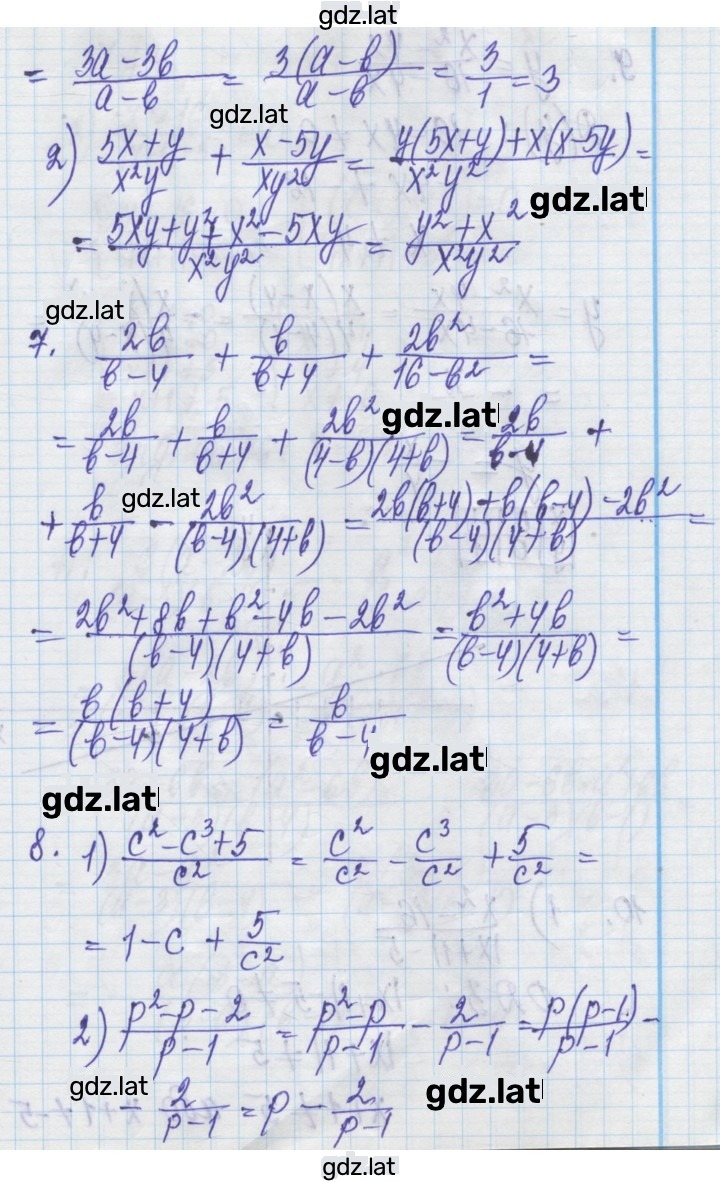 gdz.lat
= (3a-3b)/(a-b) = 3(a-b)/(a-b) = 3/1 = 3
gdz.lat
2) (5x+y)/(x²y) + (x-5y)/(xy²) = (y(5x+y)+x(x-5y))/(x²y²) =
gdz.lat
= (5xy+y²+x²-5xy)/(x²y²) = (y²+x²)/(x²y²)
gdz.lat
7. 2b/(b-4) + b/(b+4) + 2b²/(16-b²) =
= 2b/(b-4) + b/(b+4) + 2b²/((4-b)(4+b)) = 2b/(b-4) +
gdz.lat
+ b/(b+4) - 2b²/((b-4)(4+b)) = (2b(b+4)+b(b-4)-2b²)/((b-4)(4+b)) =
gdz.lat
= (2b²+8b+b²-4b-2b²)/((b-4)(4+b)) = (b²+4b)/((b-4)(4+b)) =
= b(b+4)/((b-4)(4+b)) = b/(b-4)
gdz.lat
gdz.lat
8. 1) (c²-c³+5)/c² = c²/c² - c³/c² + 5/c² =
= 1-c + 5/c²
2) (p²-p-2)/(p-1) = (p²-p)/(p-1) - 2/(p-1) = p(p-1)/(p-1) -
gdz.lat
gdz.lat
- 2/(p-1) = p - 2/(p-1)
gdz.lat